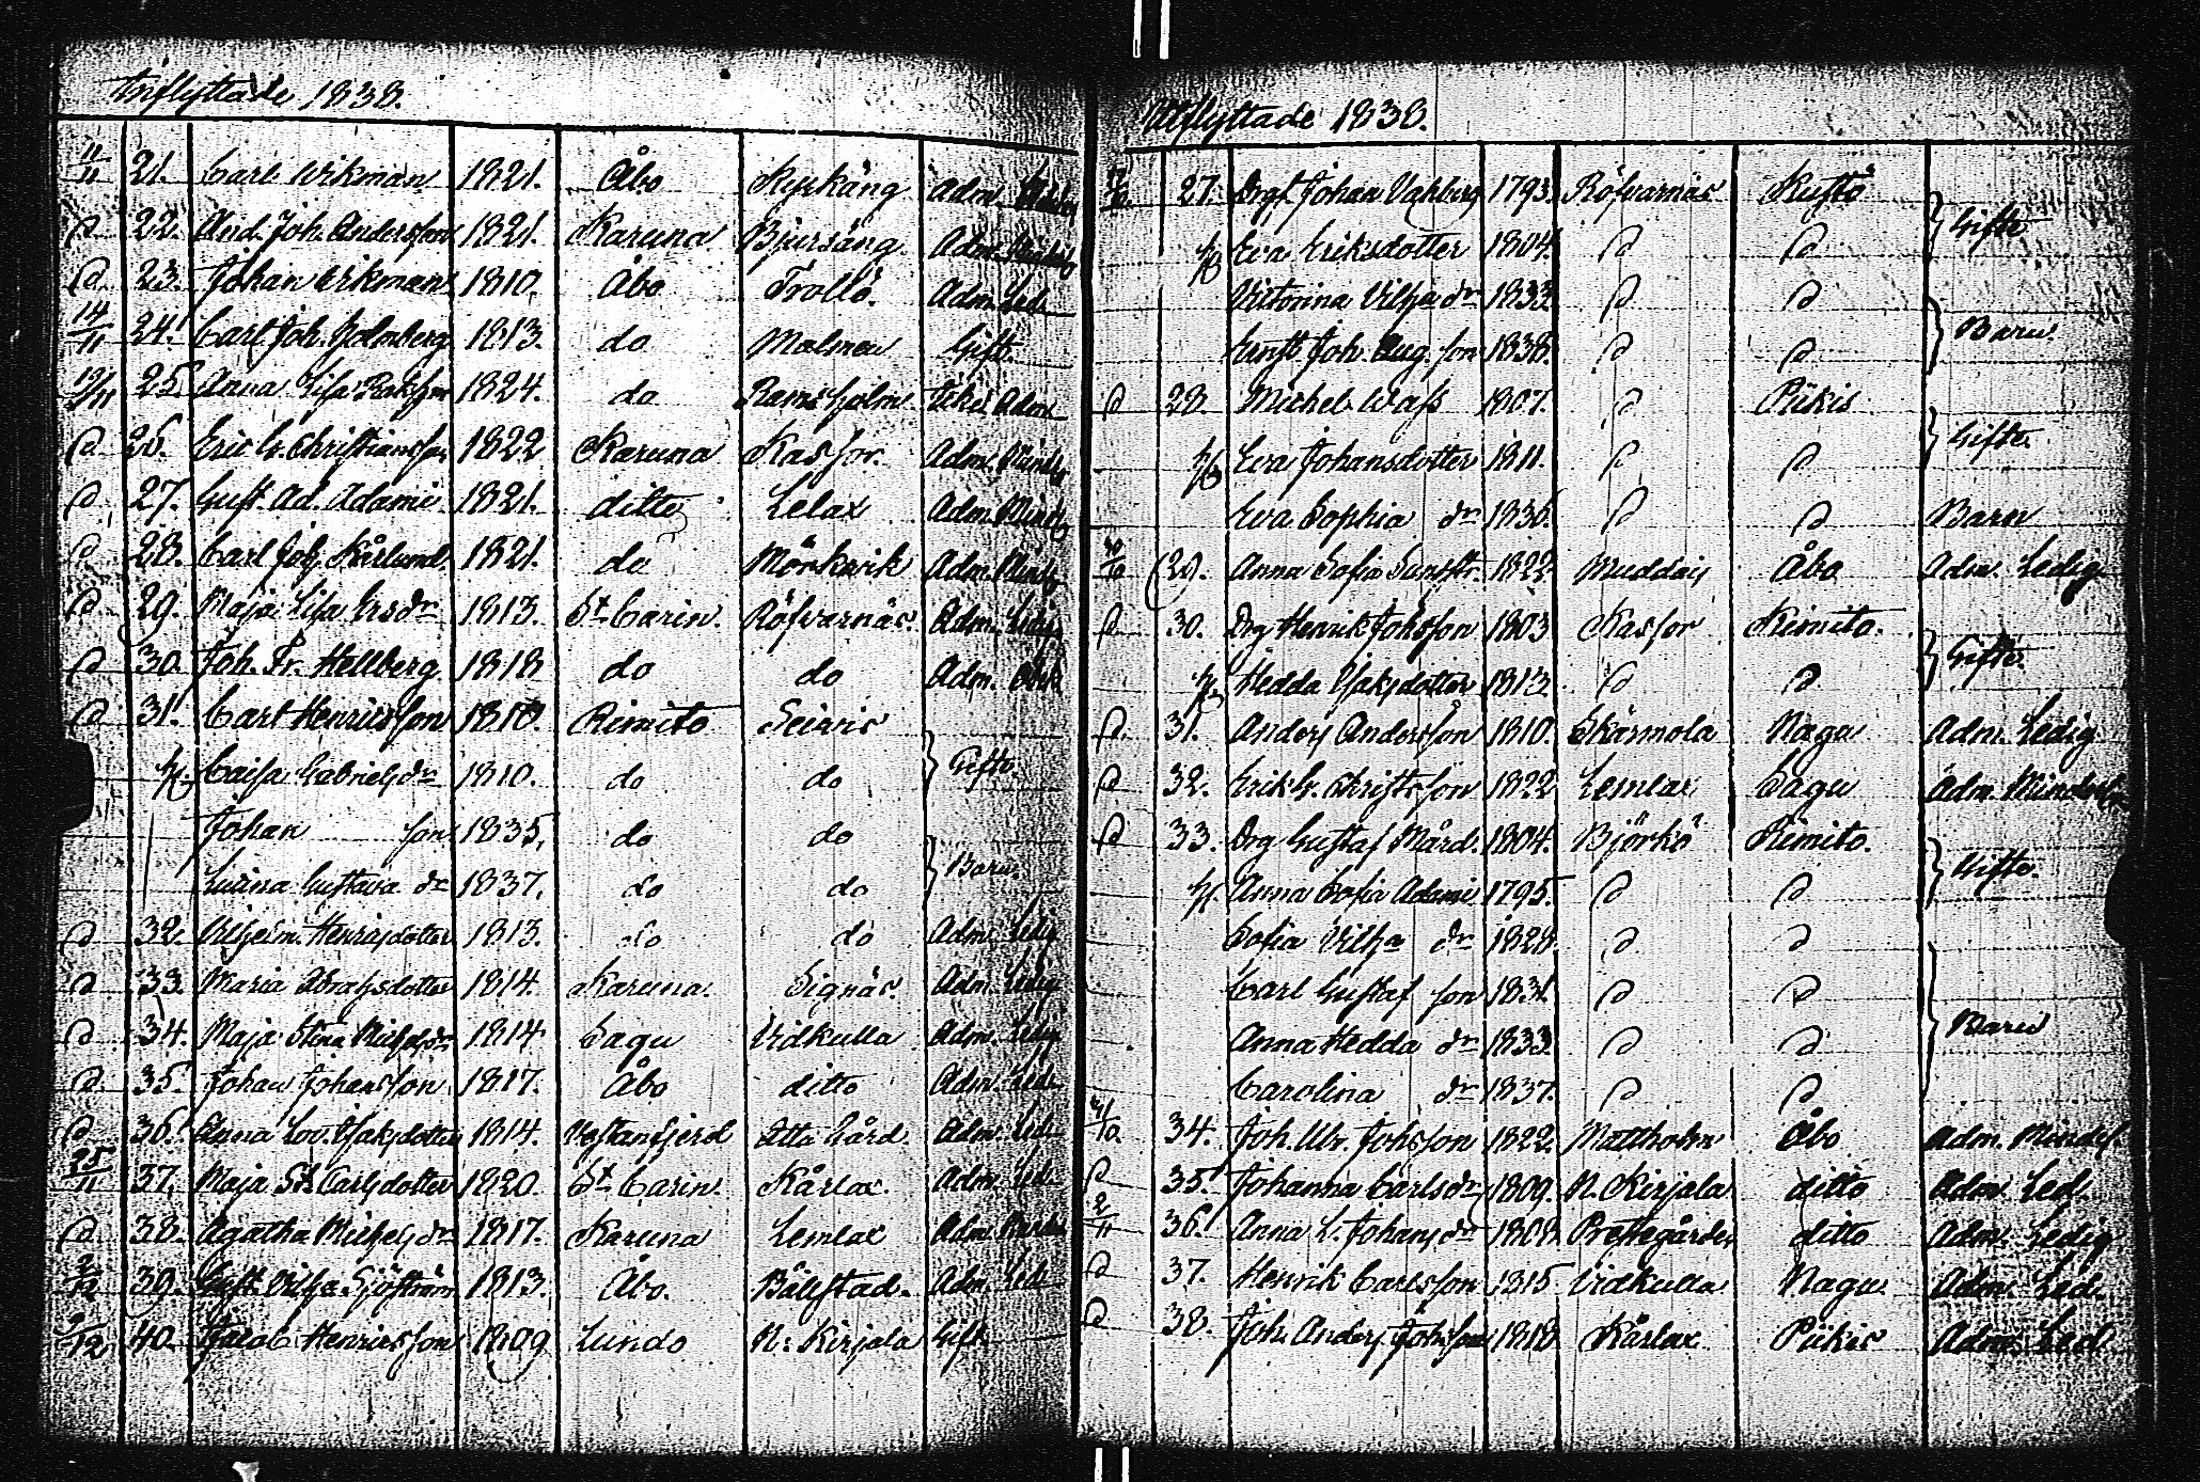 Inflyttade 1838.
11/11 21. Carl Wikman 1821. Åbo Adm.
D 22. And. Joh. Andersson 1821. Karuna Bjursäng. Adm.
D 23. Johan Wikman 1810. Åbo Trollö. Adm. Led.
14/11 24. Carl Joh. Holmberg 1813. do Malmen Gift.
25. Anna Lisa 1824. do Ramsholm Adm
D 26. Eric G. Christiansson 1822 Karuna Kassor. Adm.
D 27. Gust. Ad. Adami 1821. ditto Lelax Adm.
D 28. Carl Joh. Kårlund 1821. do Mörkvik Adm.
D 29. Maja Lisa Ersdr 1813. St Carin. Röfvarnäs. Adm. Ledig
D 30. Joh. Fr. Hellberg 1818 do do Adm.
D 31. Carl Henricsson 1810. Rimito Seivis
h. Caisa Gabrielsdr 1810. do do } Gifte.
Johan son 1835. do do
Gustava dr 1837. do do } Barn.
D 32. Vilhelm. Henricsdotter 1813. do do Adm. Ledig
D 33. Maria Abrahsdotter 1814. Karuna. Signäs. Adm. Ledig
D 34. Maja Stina Michelsdr 1814 Sagu Vidkulla Adm. Ledig
D 35. Johan Johansson 1817. Åbo ditto Adm. Led.
D 36. Anna Lov. Isaksdotter 1814. Vestanfjerd Gård Adm. Led.
25/11 37. Maja St. Carlsdotter 1820. St Carin. Kårlax. Adm. Led.
D 38. Agatha Michelsdr 1817. Karuna Lemlax Adm.
2/12 39. Gust. Vilha. Sjöström 1813. Åbo. Adm. Led.
9/12 40. Jacob Henricsson 1809 Lundo N. Kirjala Gift

Utflyttade 1838.
27. Drgt Johan Vahberg 1793. Röfvarnäs Kustö
h Eva Eriksdotter 1804. D D } Gifte
Victorina Vilha dr 1833. D D
Ernst Joh. Aug. son 1838. D D } Barn.
D 28 Michel Wass 1807. D Piikis
h Eva Johansdotter 1811. D D } Gifte.
Eva Sophia dr 1836. D D Barn
29. Anna Sofia 1822 Muddais Åbo Adm. Ledig
D 30. Drg Henrik Johsson 1803 Kassor Kimito.
h Hedda Isaksdotter 1813. D D } Gifte.
D 31. Anders Andersson 1810. Skärmola Nagu Adm. Ledig
D 32. Erik G. Christsson 1822 Lemlax Sagu Adm.
D 33. Drg Gustaf Mård. 1804. Björkö Rimito.
h. Anna Sofia Adami 1795. D D } Gifte.
Sofia Vilha dr 1828. D D
Carl Gustaf son 1831. D D
Anna Hedda dr 1833. D D } Barn
Carolina dr 1837. D D
34. Joh. Johsson 1822. Mattholm Åbo Adm.
D 35. Johanna Carlsdr 1809. N. Kirjala ditto Adm. Led.
2/11 36. Anna L. Johansdr 1808. Prestegården ditto Adm. Ledig
D 37. Henrik Carlsson 1815 Vidkulla Nagu Adm. Led.
D 38. Joh. Anders Johsson 1818 Kårlax Piikis Adm. Led